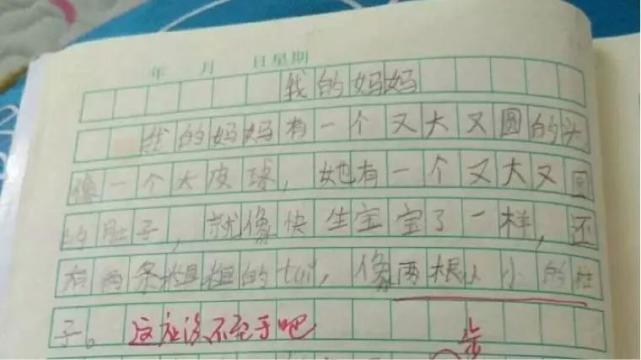 年 月 日 星期
我的妈妈
我的妈妈有一个又大又圆的头
像一个大皮球，她有一个又大又圆
的肚子，就像快生宝宝了一样，还
有两条粗粗的tuǐ，像两根小小的柱
子。这应该不至于吧